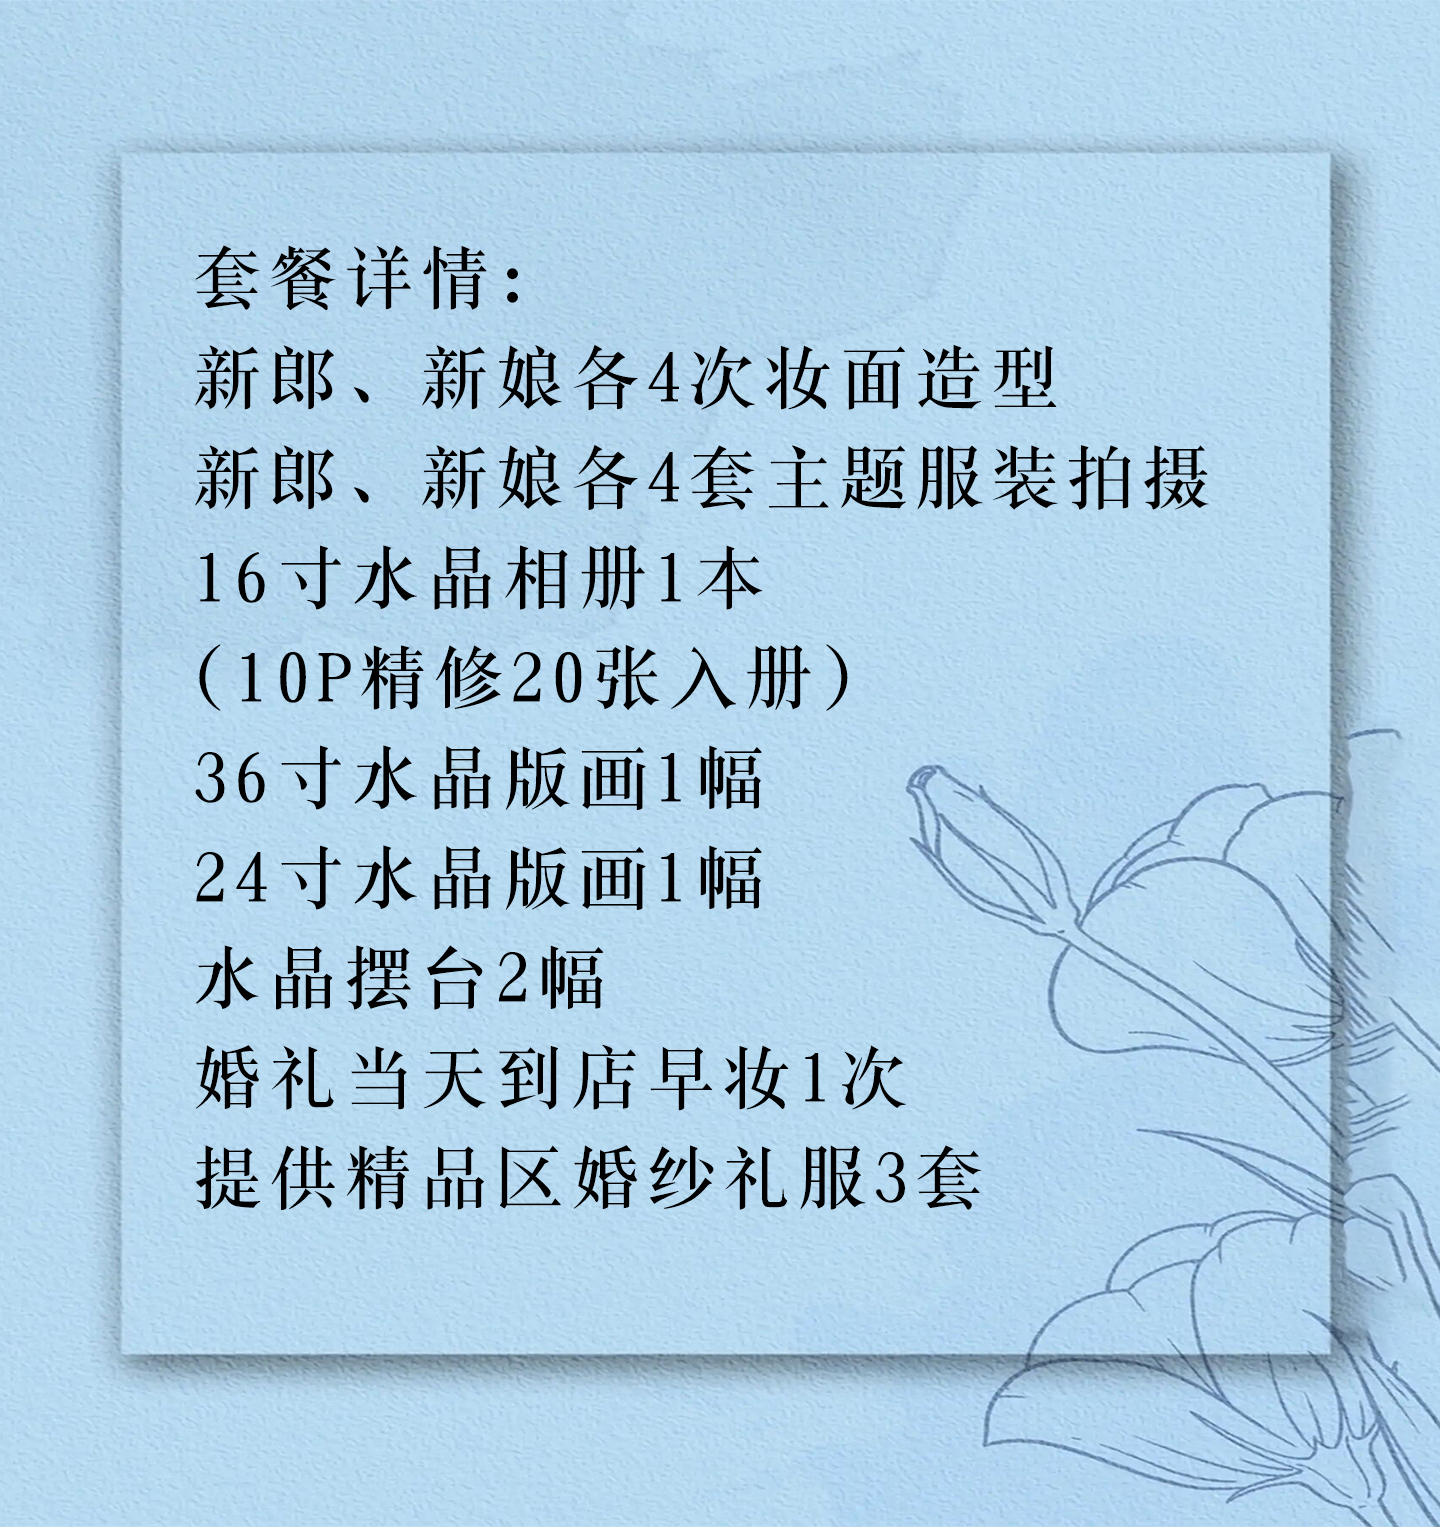 套餐详情：
新郎、新娘各4次妆面造型
新郎、新娘各4套主题服装拍摄
16寸水晶相册1本
（10P精修20张入册）
36寸水晶版画1幅
24寸水晶版画1幅
水晶摆台2幅
婚礼当天到店早妆1次
提供精品区婚纱礼服3套